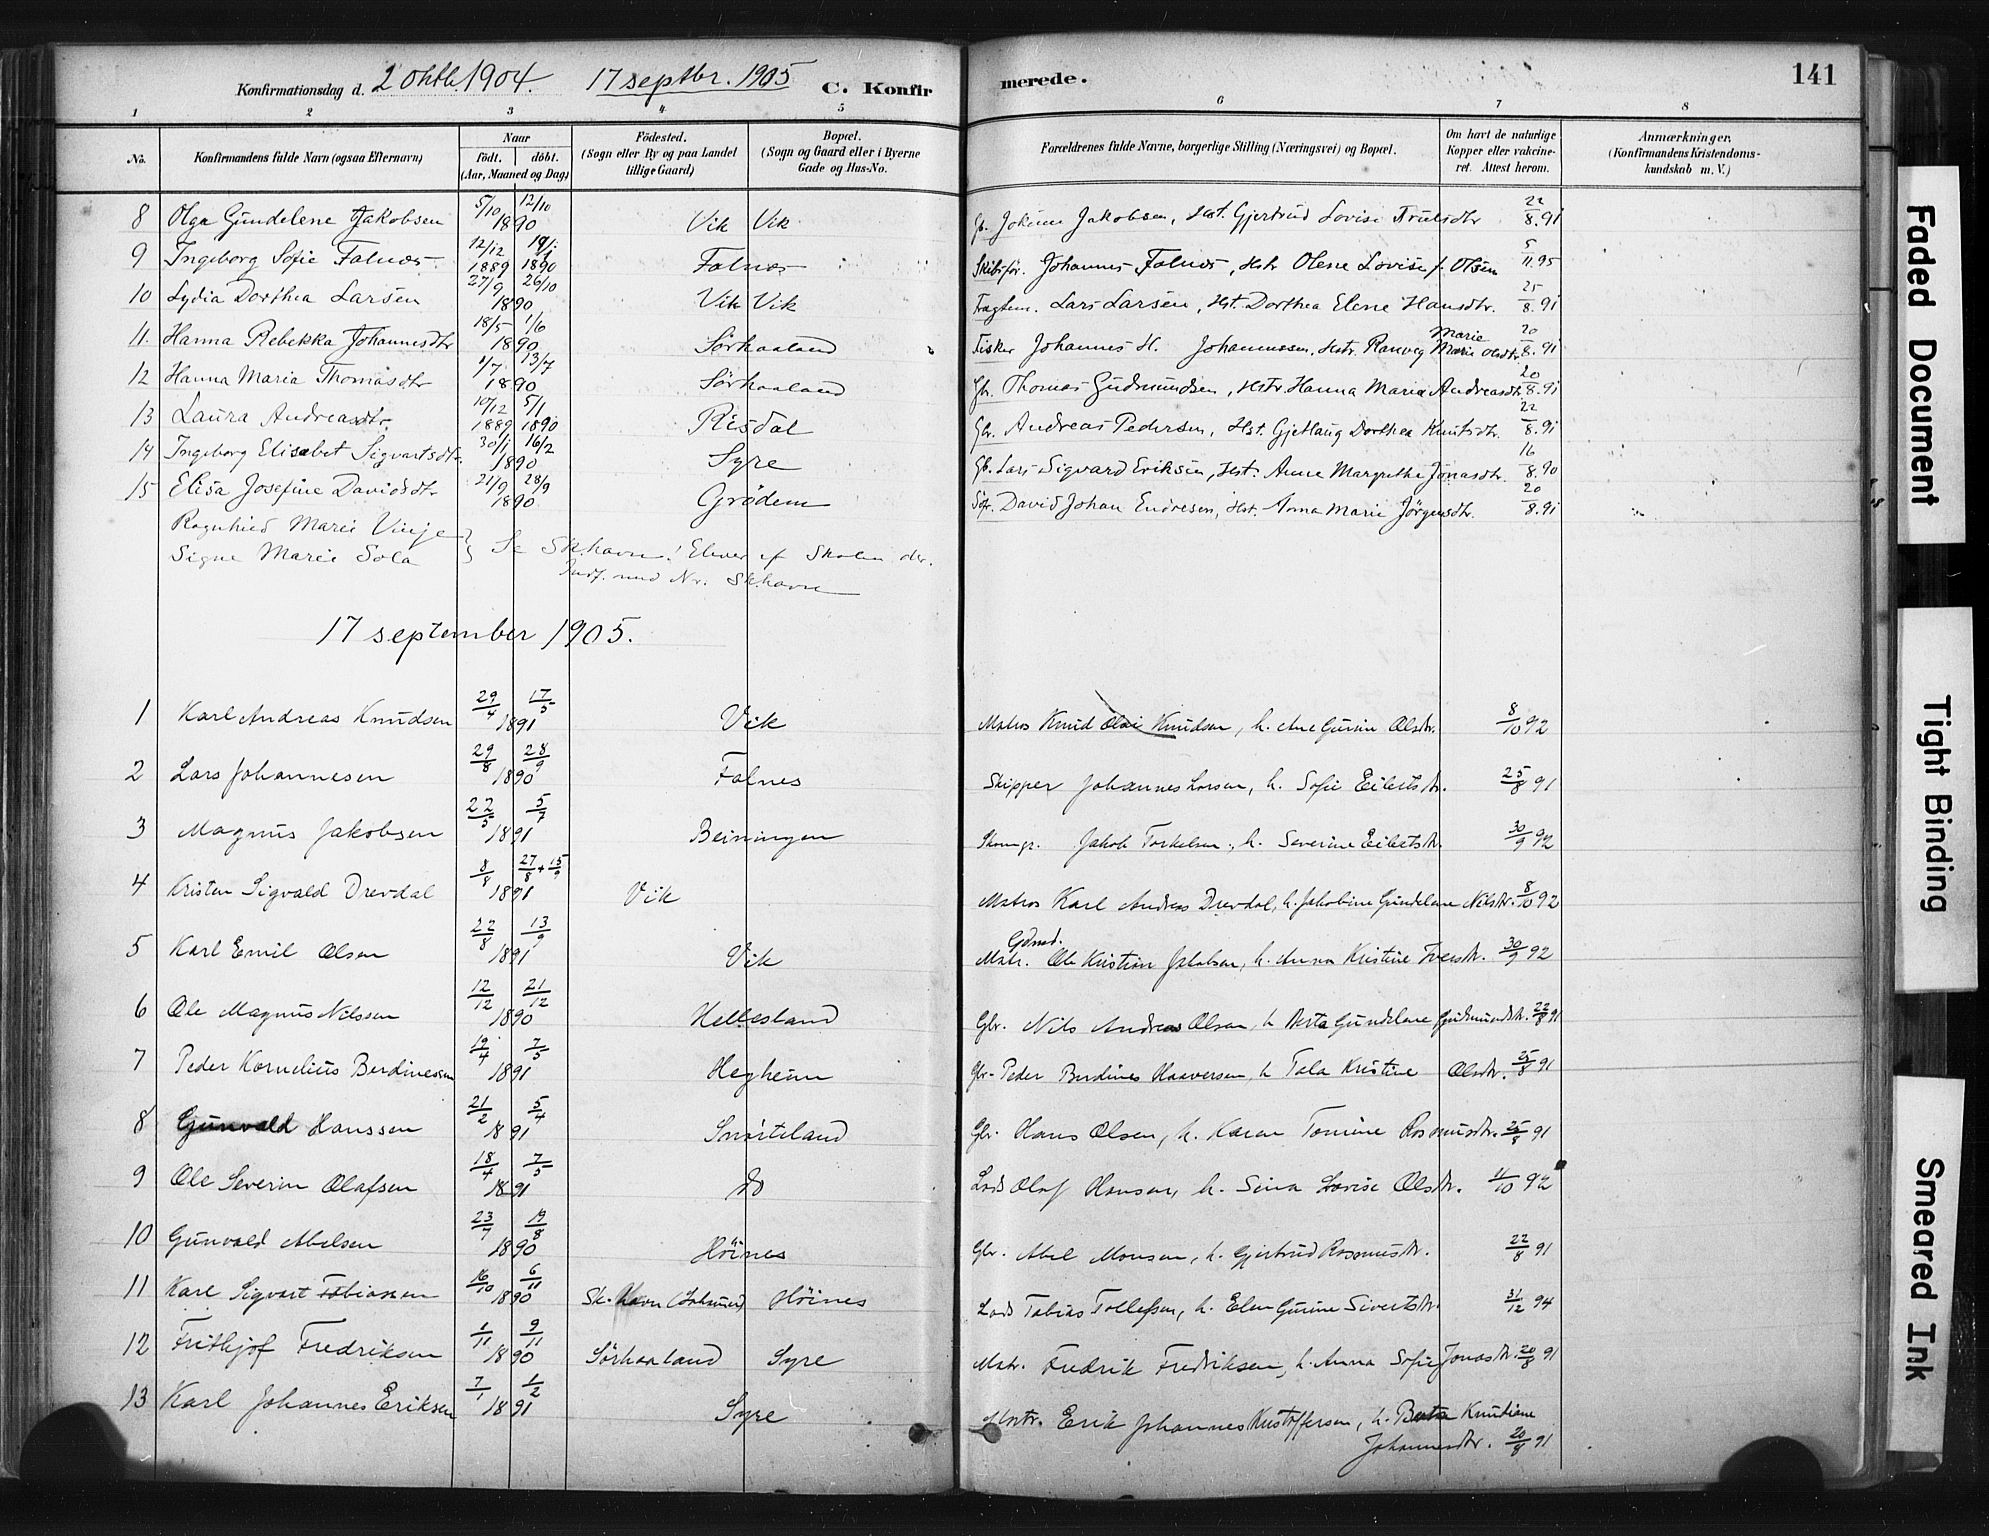 Konfirmationsdag d. 2 Oktb. 1904. 17 septbr. 1905 C. Konfirmerede. 141
1 2 3 4 5 6 7 8
No. Konfirmandens fulde Navn (ogsaa Efternavn) Naar födt. döbt. (Aar, Maaned og Dag) Födested. (Sogn eller By og paa Landet tillige Gaard) Bopæl. (Sogn og Gaard eller i Byerne Gade og Hus-No. Forældrenes fulde Navne, borgerlige Stilling (Næringsvei) og Bopæl. Om havt de naturlige Kopper eller vakcineret. Attest herom. Anmærkninger. (Konfirmandens Kristendomskundskab m. V.)
8 Olga Gundelene Jakobsen 5/10 12/10 1890 Vik Vik Gb. Jokum Jakobsen, Hst. Gjertrud Lovise Trulsdtr 22/8.91
9 Ingeborg Sofie Falnæs 12/12 1889 1890 Falnæs Skibsför. Johannes Falnæs, Hstr Olene Lovise f. Olsen 5/11.95
10 Lydia Dorthea Larsen 27/9 26/10 1890 Vik Vik Fragtem. Lars Larsen, Hst. Dorthea Elene Hansdtr. 25/8.91
11. Hanna Rebekka Johannesdtr 18/5 1/6 1890 Sörhaaland Fisker Johannes H. Johannessen, Hstr. Ranveg Marie Marie Olsdtr. 20/8.91
12 Hanna Maria Thomasdtr 1/7 13/7 1890 Sörhaaland Gb. Thomas Gudmundsen, Hstr. Hanna Maria Andreasdtr. 20/8.91
13 Laura Andreasdtr. 10/12 5/1 1889 1890 Risdal Gbr. Andreas Pedersen, Hst. Gjetlaug Dorthea Knutsdtr. 22/8.91
14 Ingeborg Elisabet Sigvartsdtr. 30/1 16/2 1890 Syre Gb. Lars Sigvard Eriksen, Hst. Anne Margrethe Jonasdtr. 16/8.90
15 Elisa Josefine Davidsdtr 21/9 28/9 1890 Grödem Söf. David Johan Endresen, Hst. Anna Marie Jörgensdtr. 20/8.91
Ragnhild Marie Vinje
Signe Marie Sola } Se Sk.havn! Elever af Skolen der.
Indf. med Nr. Sk.havn
17 september 1905.
1 Karl Andreas Knudsen 29/4 17/5 1891 Vik Matros Knud Olai Knudsen, h. Ane Gurine Olsdtr. 8/10 92
2 Lars Johannesen 29/8 28/9 1890 Falnes Skipper Johannes Larsen, h. Sofie Eilertsdtr. 25/8 91
3 Magnus Jakobsen 22/5 5/7 1891 Beiningen Skomgr. Jakob Torkelsen, h. Severine Eilertsdtr. 30/9 92
4 Kristen Sigvald Drevdal 8/8 27/8 + 15/9 1891 Vik Matros Karl Andreas Drevdal, h. Jakobine Gundelane Nilsdtr. 8/10 92
5 Karl Emil Olsen 22/8 13/9 1891 Vik Gdmd. Matr. Ole Kristian Jakobsen, h. Anna Kristine Iversdtr. 30/9 92
6 Ole Magnus Nilssen 12/12 21/12 1890 Hellesland Gbr. Nils Andreas Olsen, h Berta Gundelane Gudmundsdtr. 22/8 91
7 Peder Kornelius Berdinessen 19/4 7/5 1891 Hegheim Gbr. Peder Berdines Haaversen, h Tala Kristine Olsdtr. 25/8 91
8 Gunvald Hanssen 21/2 5/4 1891 Snörteland Gbr. Hans Olsen, h. Karen Tomine Rasmusdtr. 25/8 91
9 Ole Severin Olafsen 18/4 7/5 1891 do Lods Olaf Hansen, h. Sina Lovise Olsdtr. 11/10 92
10 Gunvald Abelsen 23/7 19/8 1890 Höines Gbr. Abel Monsen, h. Gjertrud Rasmusdtr. 22/8 91
11 Karl Sigvart Tobiassen 16/10 6/11 1890 Sk. Havn Höines Lods Tobias Tollefsen, h. Elen Gurine Sivertsdtr. 31/12 94
12 Frithjof Fredriksen 1/11 9/11 1890 Sörhaaland Syre Matr. Fredrik Fredriksen, h. Anna Sofie Jonasdtr. 20/8 91
13 Karl Johannes Eriksen 7/1 1/2 1891 Syre Erik Johannes Kristoffersen, h. Berta Knudiane
Johannesdtr. 20/8 91
Faded Document
Tight Binding
Smeared Ink